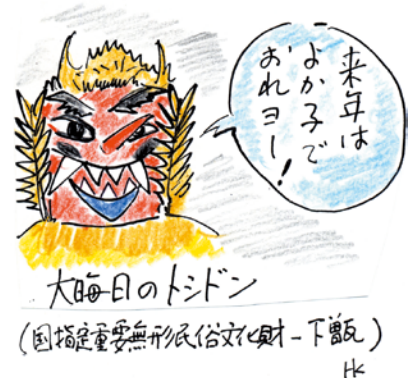 来年は
よか子で
おれヨー!
大晦日のトシドン
(国指定重要無形民俗文化財-下甑)
HK